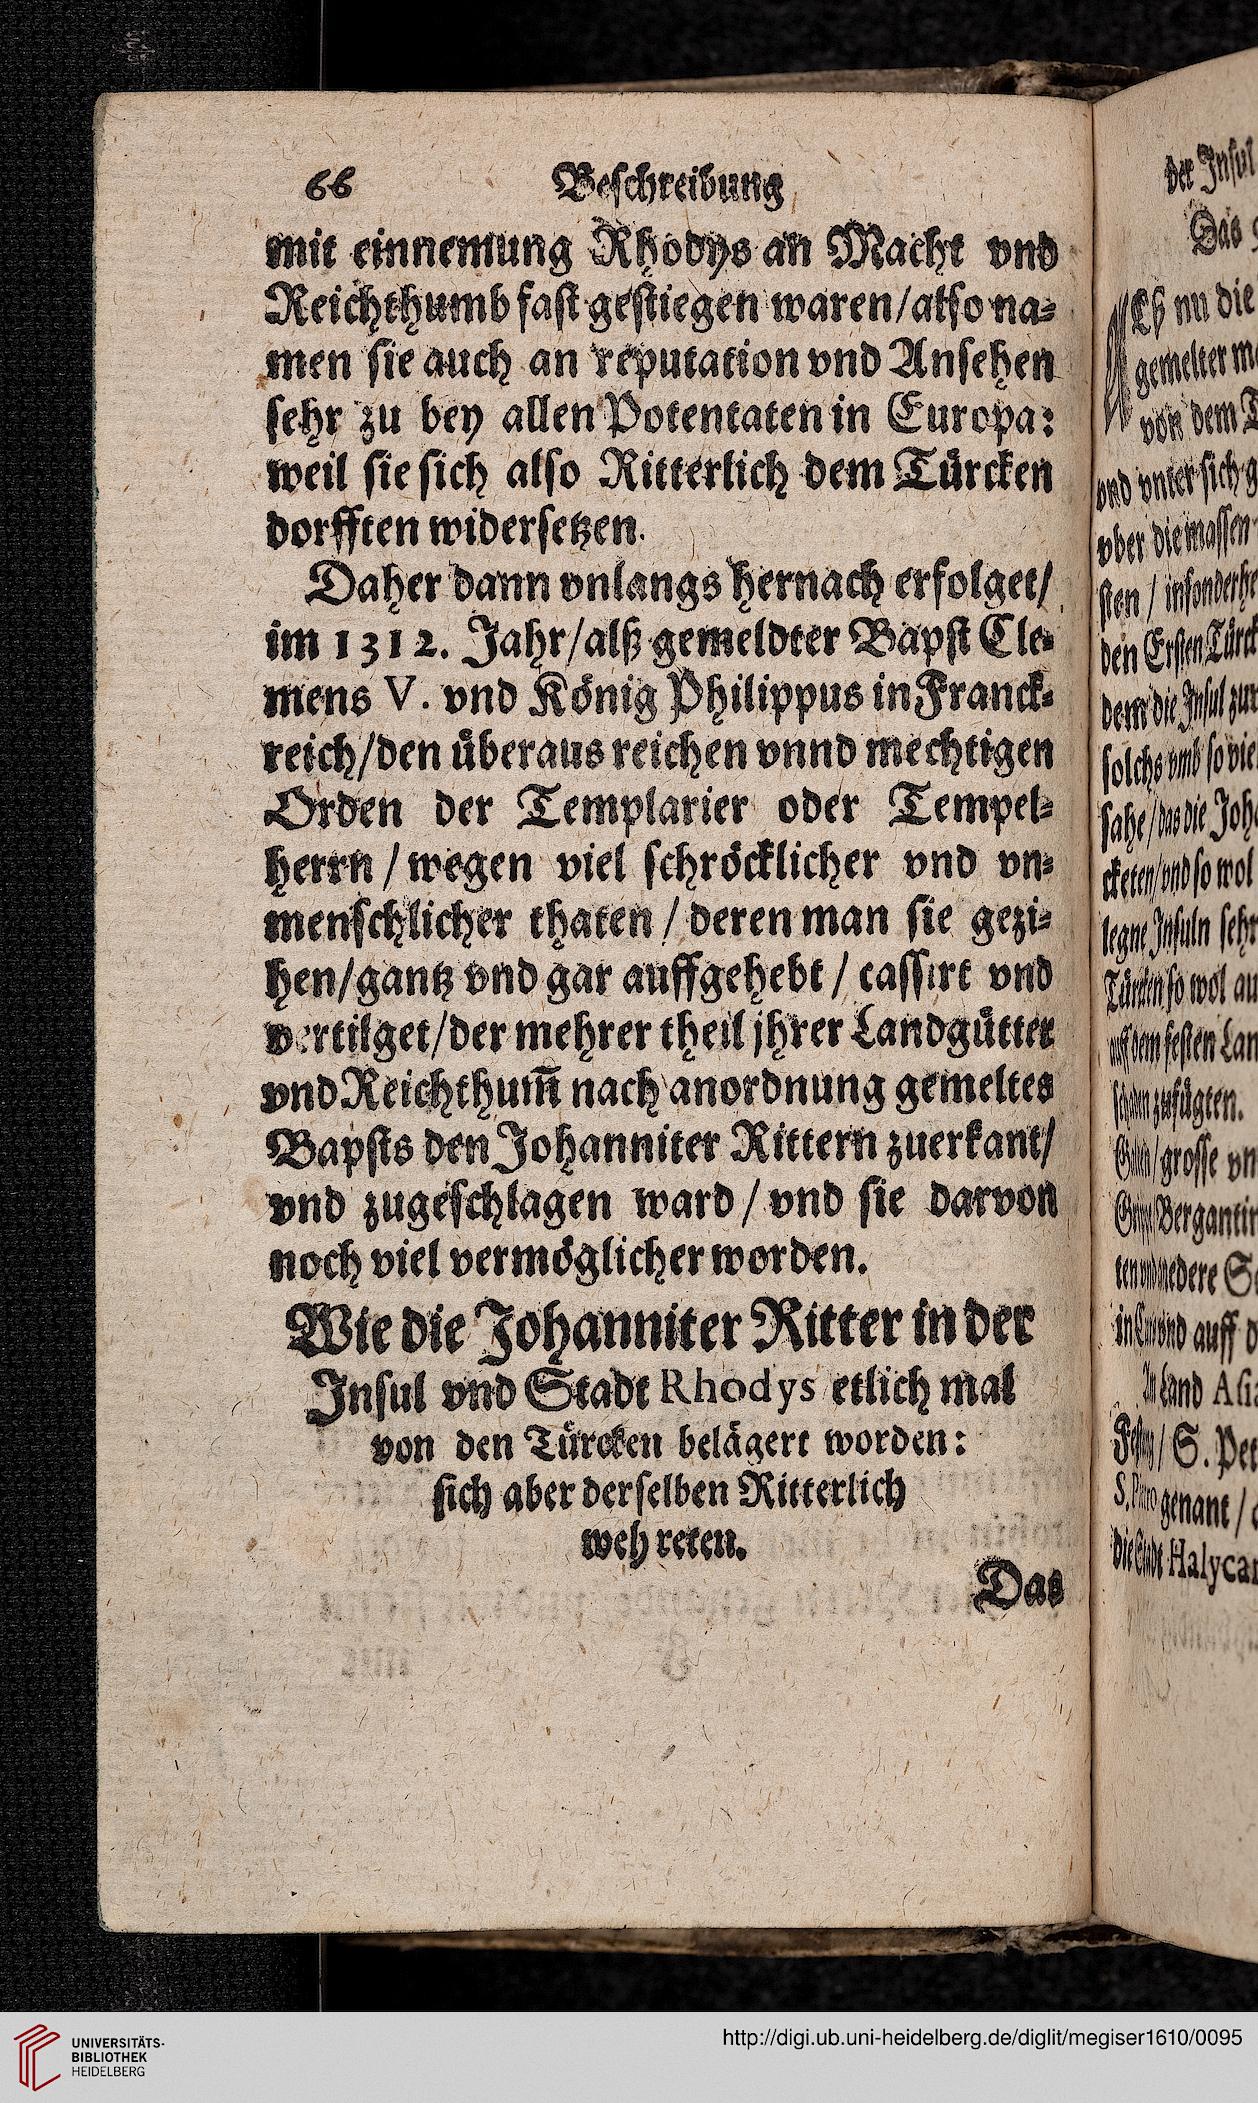 66 Beschreibung
mit einnemung Rhodys an Macht vnd
Reichthumb fast gestiegen waren/also na-
men sie auch an reputation vnd Ansehen
sehr zu bey allen Potentaten in Europa:
weil sie sich also Ritterlich dem Türcken
dorfften widersetzen.
Daher dann vnlangs hernach erfolget/
im 1312. Jahr/alß gemeldter Bapst Cle-
mens V. vnd König Philippus in Franck-
reich/den überaus reichen vnnd mechtigen
Orden der Templarier oder Tempel-
herrn/wegen viel schröcklicher vnd vn-
menschlicher thaten/deren man sie gezi-
hen/gantz vnd gar auffgehebt/cassirt vnd
vertilget/der mehrer theil jhrer Landgütter
vnd Reichthum̄ nach anordnung gemeltes
Bapsts den Johanniter Rittern zuerkant/
vnd zugeschlagen ward/vnd sie darvon
noch viel vermöglicher worden.
Wie die Johanniter Ritter in der
Insul vnd Stadt Rhodys etlich mal
von den Türcken belägert worden:
sich aber derselben Ritterlich
wehreten.
Das
der Insul
Das
ALß nu die
gemelter
von dem
vnd vnter sich
vber die massen
sten/
den Ersten
dem die Insul
solchs vmb so
sahe/das die
cketen/vnd so wol
legne Insuln sehr
Türcken so wol
auff dem festen
schaden zufügten.
grosse
in vnd auff
Land
S.
genant/
die Stadt
UNIVERSITÄTS-
BIBLIOTHEK
HEIDELBERG
http://digi.ub.uni-heidelberg.de/diglit/megiser1610/0095